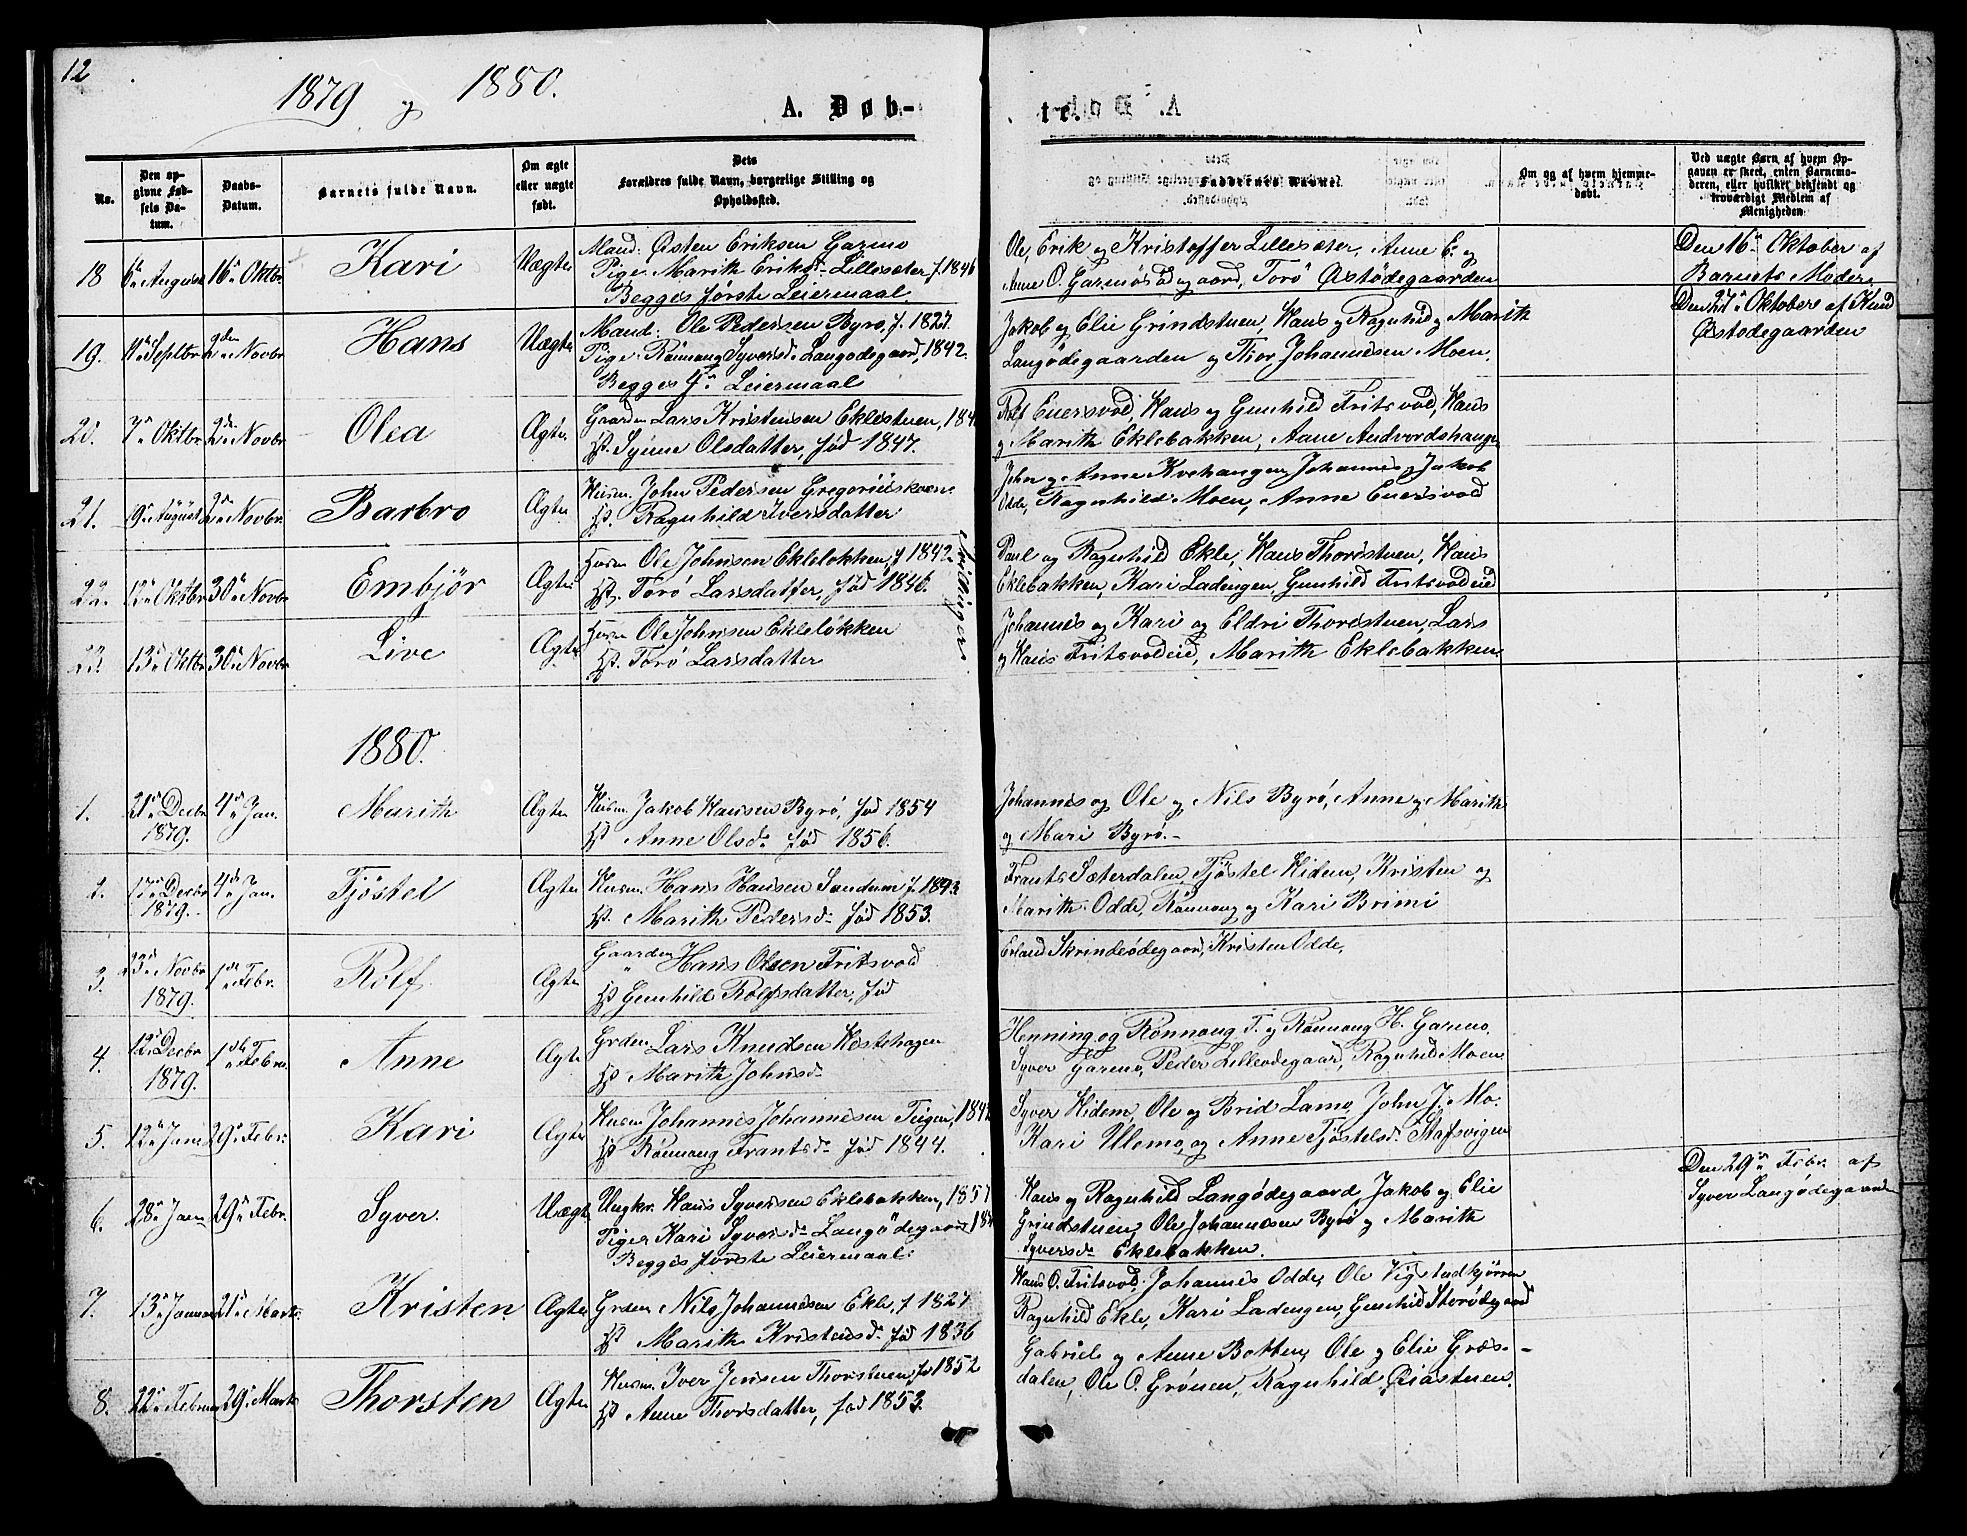 12
1879 og 1880.
A. Døb-
te.
No.
Den opgivne Fødsels Datum.
Daabs-Datum.
Barnets fulde Navn.
Om ægte eller uægte født.
Dets Forældres fulde Navn, borgerlige Stilling og Opholdssted.
Faddernes Navne.
Om og af hvem hjemmedøbt.
Ved uægte Børn af hvem Opgaven er skeet, enten Barnemoderen, eller hvilket bekjendt og troværdigt Medlem af Menigheden
18 6te August 16de Oktbr. Kari Uægte
Mand: Østen Eriksen Garmo
Pige: Marith Eriksd. Lillesæter, f. 1846
Begges første Leiermaal.
Ole, Erik og Kristoffer Lillesæter, Anne E. og
Anne O. Garmosødegaard, Torø Østødegaarden
Den 16de Oktober af
Barnets Moder.
19. Septbr. 2den Novbr. Hans Uægte
Mand: Ole Pedersen Byrø, f. 1827.
Pige: Rønnaug Syversd. Langødegaard, 1842.
Begges Leiermaal
Jakob og Elie Grindstuen, Hans og Ragnhild og Marith
Langødegaarden og Thor Johannesen Moen.
Den Oktober af Knud
Østødegaarden
20. 7de Oktbr. 2den Novbr. Olea Ægte.
Gaardm Lars Kristensen Eklestuen, 184
H. Synne Olsdatter, fød 1847.
Rolf Euersvod, Hans og Gunhild Fritsvod, Hans
og Marith Eklebakken, Anne Andvordshaugen
21. August 2den Novbr. Barbro Ægte
Husm. John Pedersen Gregoriuskvern
H. Ragnhild Iversdatter
John og Anne Kvehaugen, Johannes og Jakob
Odde, Ragnhild Moen, Anne Euersvod
22. 12te Oktbr 30te Novbr. Embjør Ægte
Husm Ole Johnsen Ekleløkken, f 1842
H. Torø Larsdatter, fød 1846.
Tvillinger
Paul og Ragnhild Ekle, Hans Thorstuen, Hans
Eklebakken, Kari Ladengen, Gunhild Fritsvodeid
23. 13de Oktbr 30te Novbr. Live Ægte
Husm Ole Johnsen Ekleløkken
H. Torø Larsdatter
Johannes og Kari og Eldri Thorstuen, Lars
og Hans Fritsvodeid, Marith Eklebakken.
1880.
1. 21de Decbr 1879. 4de Jan. Marith Ægte
Husm. Jakob Hansen Byrø, fød 1854
H. Anne Olsd. fød 1856.
Johannes og Ole og Nils Byrø, Anne og Marith
og Mari Byrø.
2. 17de Decbr 1879. 4de Jan. Tjøstel Ægte
Husm. Hans Hansen Sandum f. 1843.
H. Marith Pedersd. fød 1853.
Frants Sæterdalen, Tjøstel Hidem, Kristen og
Marith Odde, Rønnaug og Kari Brimi
3. 23de Novbr 1879. 1ste Febr. Rolf Ægte
Gaardm Hans Olsen Fritsvold
H. Gunhild Rolfsdatter, fød
Erland Skrindeødegaard, Kristen Odde,
4. 12te Decbr 1879. 1ste Febr. Anne Ægte
Grdm. Lars Knudsen Hestehagen
H. Marith Johnsd.
Henning og Rønnaug T. og Rønnaug H. Garmo,
Syver Garmo, Peder Lilleødegaard, Ragnhild Moen
5. 12te Jan. 29de Febr. Kari Ægte
Husm. Johannes Johannesen Teigen, 1842
H. Rønnaug Frantsd. fød 1844.
Syver Hidem, Ole og Brid Lamo, John J. Mo.
Kari Ulemo, og Anne Tjøstelsd. Stafsvigen
6. 28de Jan. 29de Febr. Syver. Uægte
Ungkr. Hans Syversen Eklebakken, 1857
Pige: Kari Syversd. Langødegaard, 18
Begges første Leiermaal.
Hans og Ragnhild Langødegaard, Jakob og Elie
Grindstuen, Ole Johannesen Byrø og Marith
Syversd. Eklebakken.
Den 29de Febr. af
Syver Langødegaarden
7. 13de Januar 21de Marts. Kristen Ægte
Grdm. Nils Johannesen Ekle, f. 1827
H. Marith Kristensd. fød 1836
Hans O. Fritsvod, Johannes Odde, Ole Vigstadkjørren
Ragnhild Ekle, Kari Ladengen, Gunhild Storødegaard
8. 22de Februar 29de Marts Thorsten Ægte
Husm. Iver Jensen Thorstuen, fød 1852
H. Anne Thorsdatter, fød 1853.
Gabriel og Anne Botten, Ole og Elie Græs-
dalen, Ole O. Grønen, Ragnhild Qviastuen.